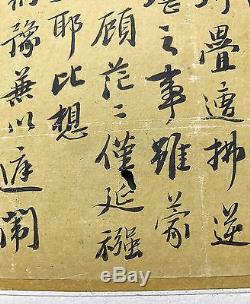 疊遭拂逆
之事雖蒙
顧茫二僅延襁
耶比想
豫兼以庭闈